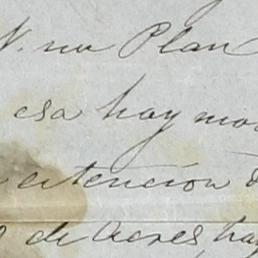 N. un Plan
esa hay mas
estencion d
de Acres, hay